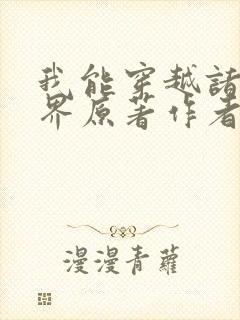 我能穿越諸
界原著作者
漫漫青蘿